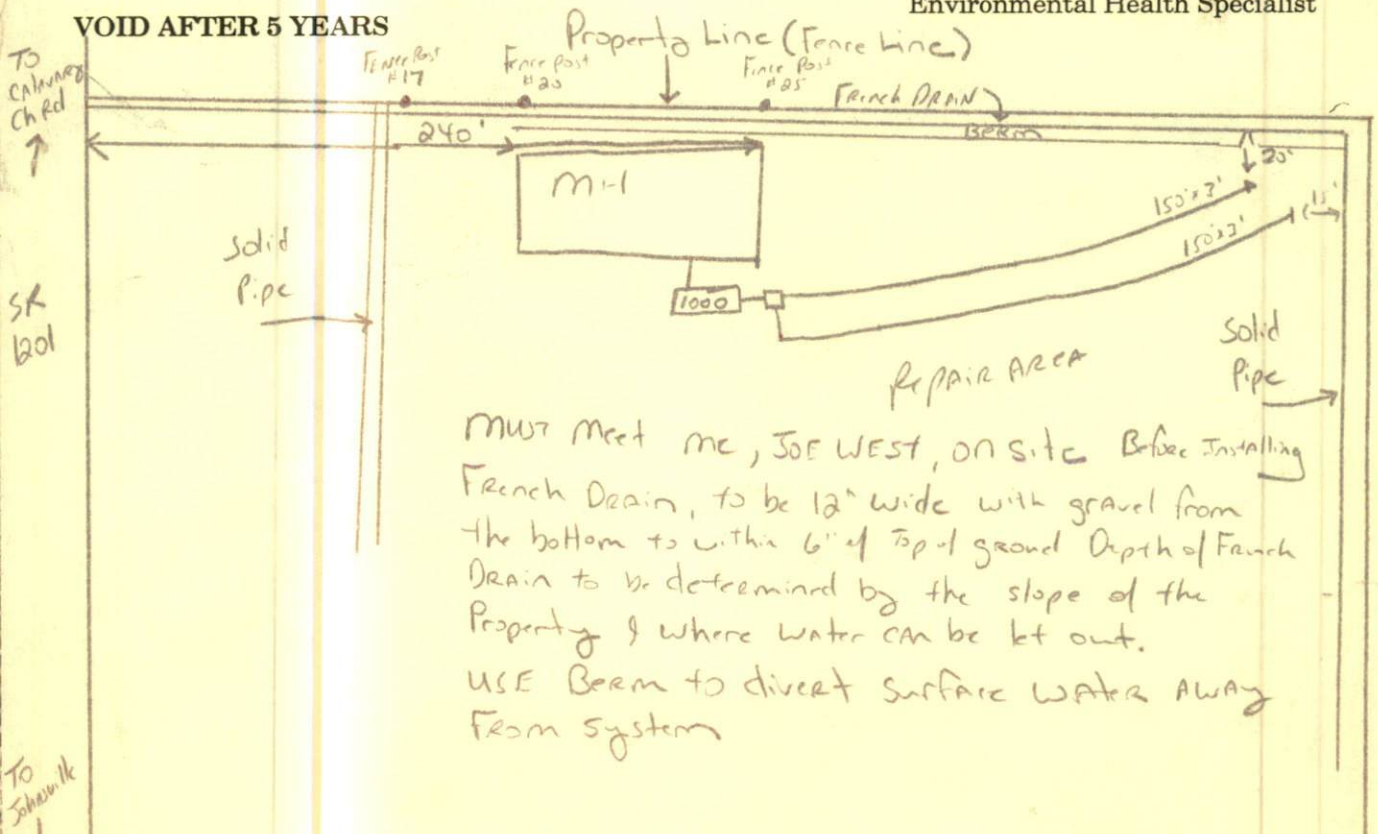 Environmental Health Specialist
VOID AFTER 5 YEARS
Property Line (Fence Line)
TO
Ch Rd
Fence Post
#17
Fence Post
#20
Fence Post
#25
French DRAIN
BERM
240'
20'
M-1
150'x3'
15'
150'x3'
Solid
Pipe
1000
SR
1201
Solid
Pipe
REPAIR AREA
MUST Meet me, JOE WEST, on site Before Installing
French Drain, to be 12" wide with gravel from
the bottom to within 6" of Top of ground Depth of French
DRAIN to be determined by the slope of the
Property & where water can be let out.
USE Berm to divert surface water AWAY
From system
TO
Johnsville